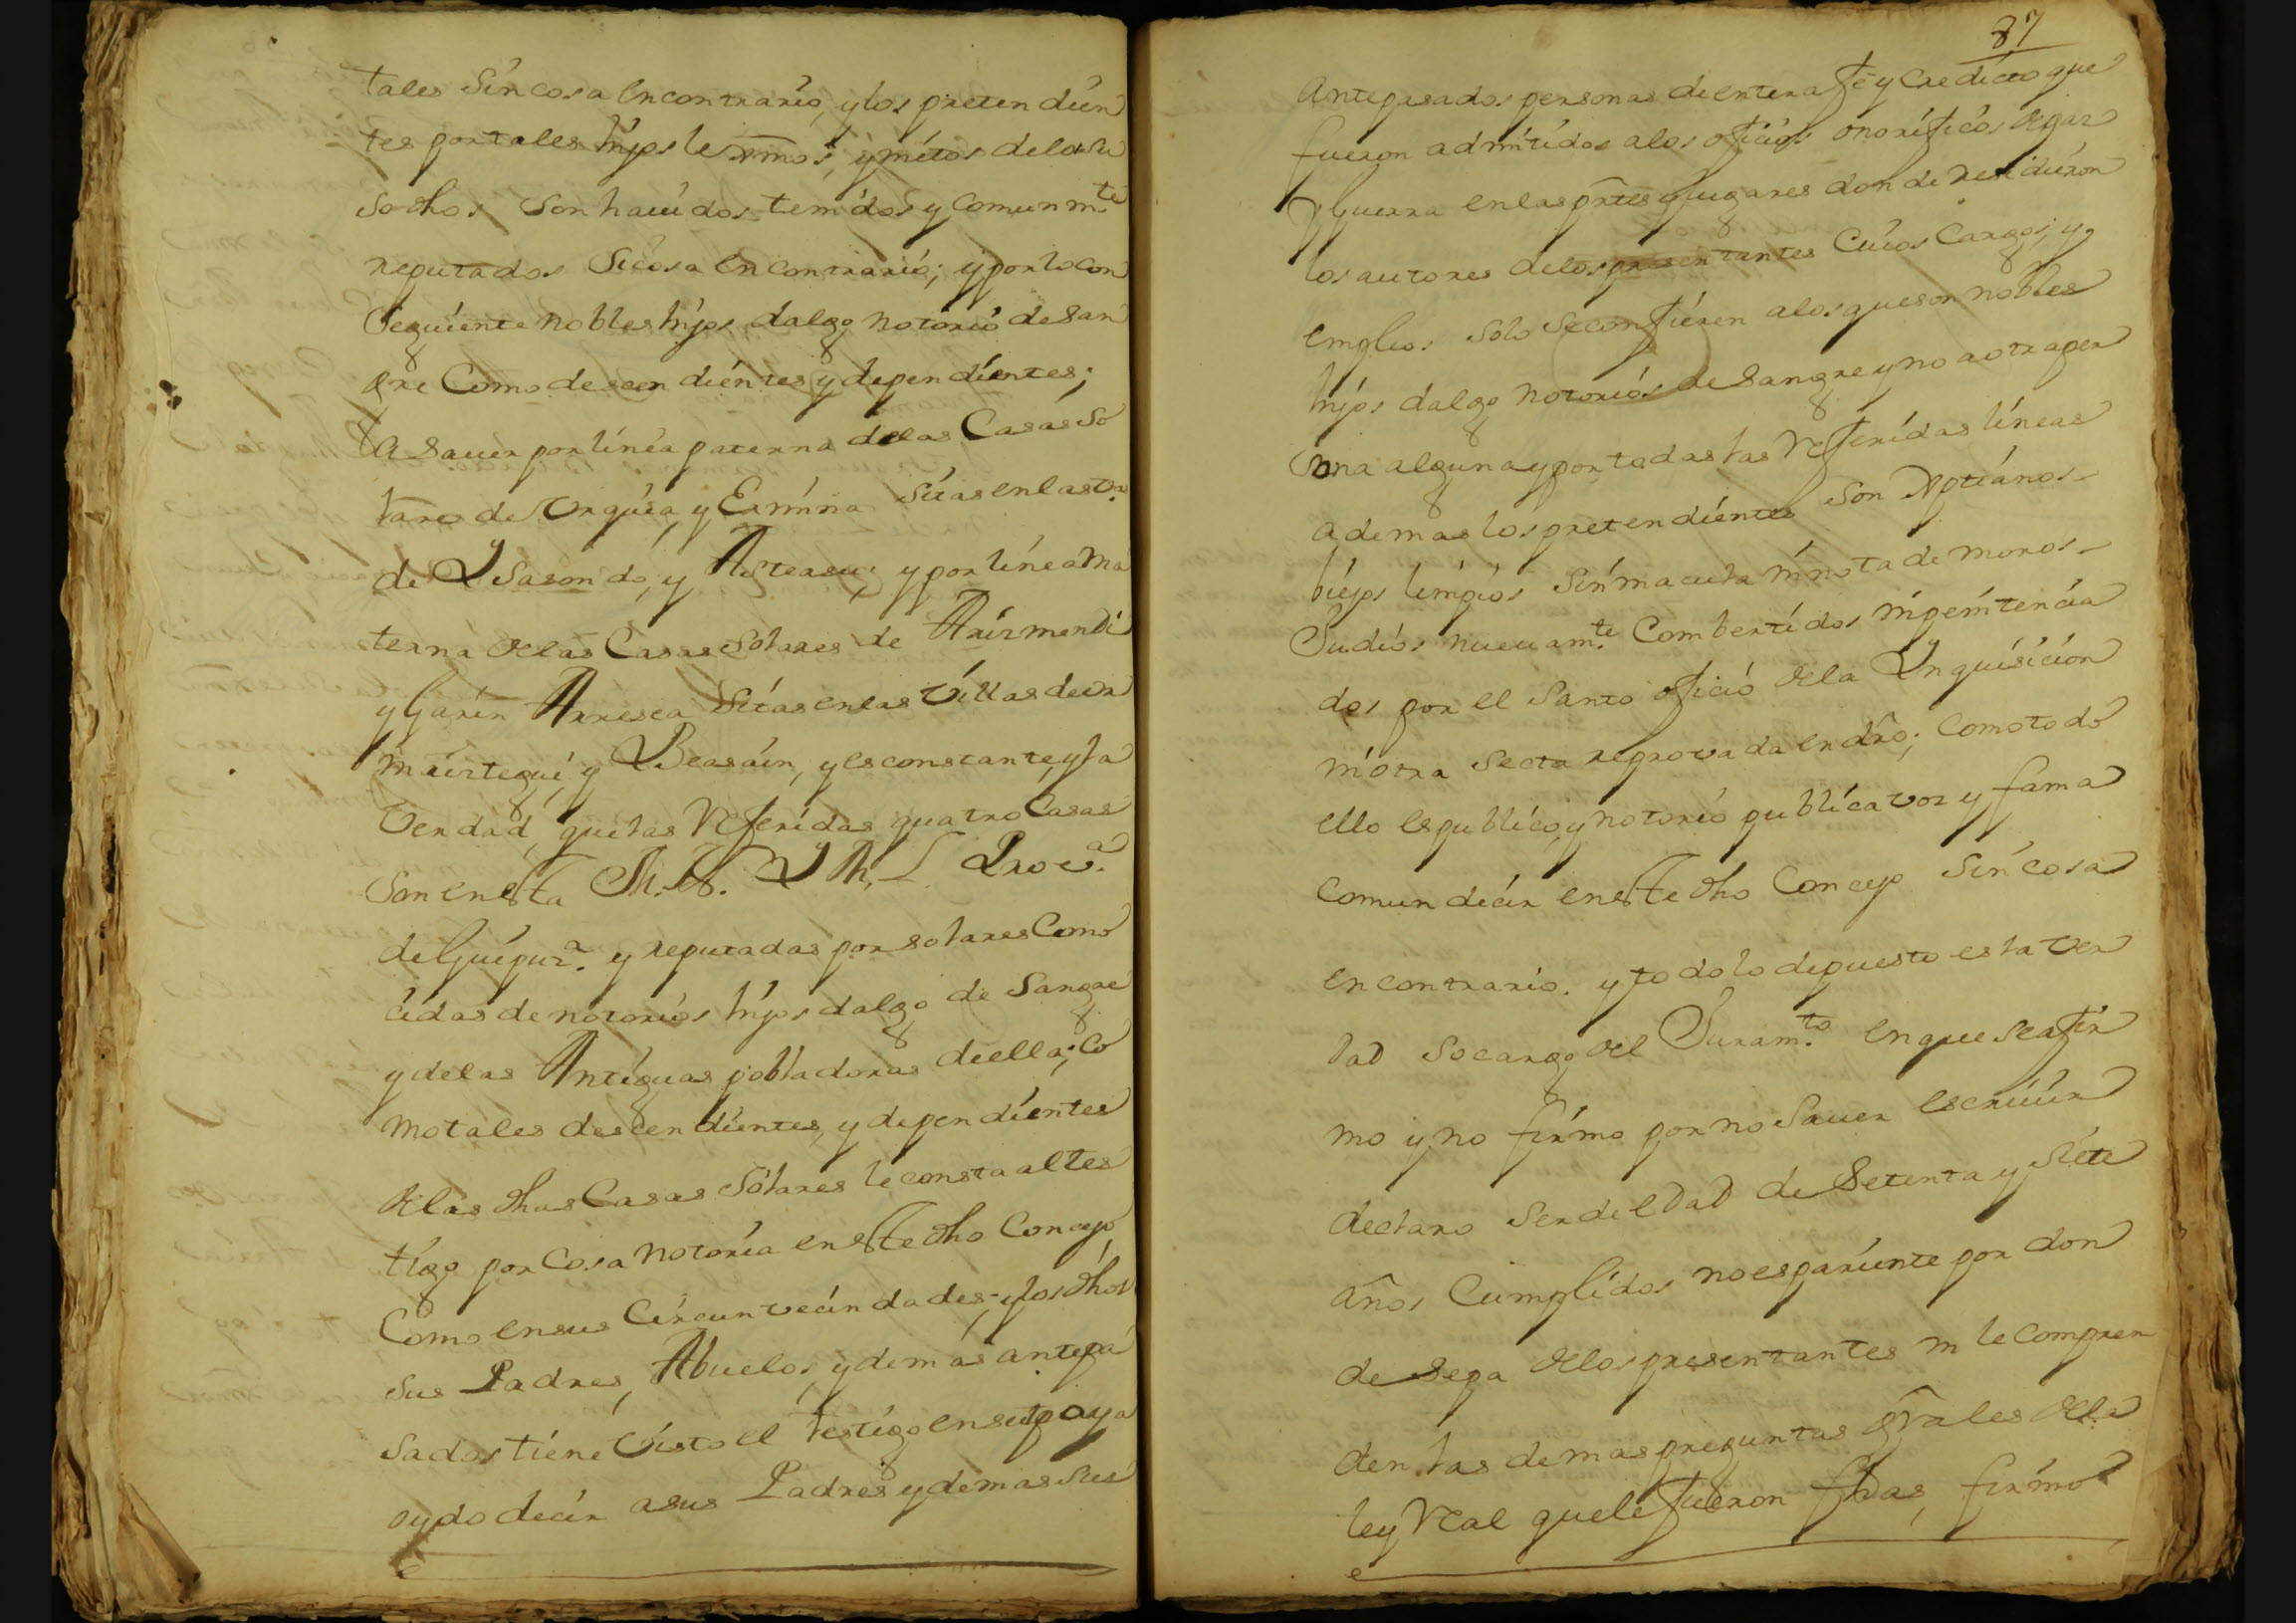 tales Sin cosa en contrario, y los pretendien
tes por tales hijos lexmos, y nietos de los su
sodhos son hauidos tenidos y comunmte
reputados Sicosa en contrario; y por lo con
Seguiente nobles hijos dalgo notorio de San
gre Como descendientes y dependientes;
a Sauer por linea paterna delas Casas So
lares de Urquia, y Ermina Sitas en las Vas
de Ysasondo, y Asteasu; y por linea Ma
terna delas Casas Solares de Arismendi
y Garin Arresea Sitas en las Villas de Or
maiztegui, y Beasain, y es constante, y la
Verdad, que las Referidas quatro Casas
Son en esta M. N. Y M. L. Prova
de Guipuza. y reputadas por solares Cono
cidas de notorios hijos dalgo de Sangre
y delas Antiguas pobladoras de ella; Co
mo tales descendientes, y dependientes
delas dhas Casas Solares le consta al tes
tigo por Cosa notoria en este dho Concejo,
Como en sus Circunvecindades; y los dhos
sus Padres, Abuelos, y demas antepa
sados tiene Visto el testigo en su tpo, y a
oydo decir a sus Padres y demas sus
87
Antepasados personas de entera fe y Credicto que
fueron admitidos a los oficios onorificos de paz
y Guerra en las prtes y lugares donde residieron
los autores delos presentantes Cuios Cargos, y
empleos solo se confieren a los que son nobles
hijos dalgo notorios de Sangre y no a otra per
sona alguna y por todas las Referidas lineas
ademas los pretendientes son Xptianos
biejos limpios Sin macula ni nota de moros
Judios nueuamte Combertidos ni penitencia
dos por el Santo oficio dela Ynquisicion
ni otra Secta reprovada en dro; Como todo
ello es publico, y notorio publica voz y fama
comun decir en este dho Concejo Sin cosa
en contrario. y todo lo depuesto es la ver
dad so cargo del Juramto en que se afir
mo y no firmo por no Sauer escriuir
declaro Ser de edad de Setenta y siete
años Cumplidos no es pariente por don
de sepa delos presentantes ni le compren
den las demas preguntas grales dela
ley Real que le fueron fhas, firmo